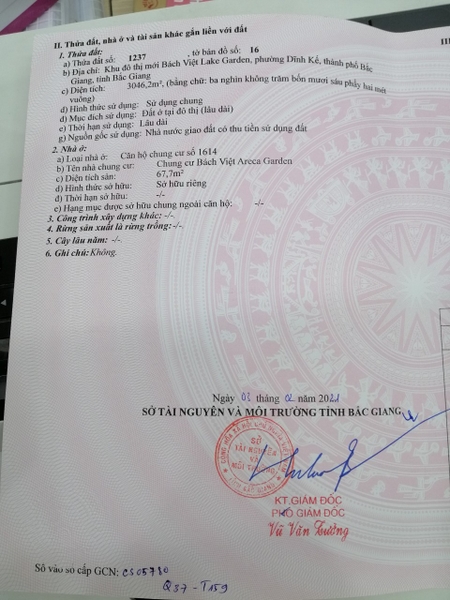 II. Thửa đất, nhà ở và tài sản khác gắn liền với đất
1. Thửa đất:
a) Thửa đất số: 1237 , tờ bản đồ số: 16
b) Địa chỉ: Khu đô thị mới Bách Việt Lake Garden, phường Dĩnh Kế, thành phố Bắc
Giang, tỉnh Bắc Giang
c) Diện tích: 3046,2m², (bằng chữ: ba nghìn không trăm bốn mươi sáu phẩy hai mét
vuông)
d) Hình thức sử dụng: Sử dụng chung
đ) Mục đích sử dụng: Đất ở tại đô thị (lâu dài)
e) Thời hạn sử dụng: Lâu dài
g) Nguồn gốc sử dụng: Nhà nước giao đất có thu tiền sử dụng đất
2. Nhà ở:
a) Loại nhà ở: Căn hộ chung cư số 1614
b) Tên nhà chung cư: Chung cư Bách Việt Areca Garden
c) Diện tích sàn: 67,7m²
d) Hình thức sở hữu: Sở hữu riêng
đ) Thời hạn sở hữu: -/-
e) Hạng mục được sở hữu chung ngoài căn hộ: -/-
3. Công trình xây dựng khác: -/-
4. Rừng sản xuất là rừng trồng: -/-
5. Cây lâu năm: -/-
6. Ghi chú: Không.
III
Ngày 03 tháng 02 năm 2021
SỞ TÀI NGUYÊN VÀ MÔI TRƯỜNG TỈNH BẮC GIANG
SỞ
TÀI NGUYÊN
VÀ
MÔI TRƯỜNG
KT.GIÁM ĐỐC
PHÓ GIÁM ĐỐC
Vũ Văn Tưởng
Số vào sổ cấp GCN: CS05730
Q37-T159